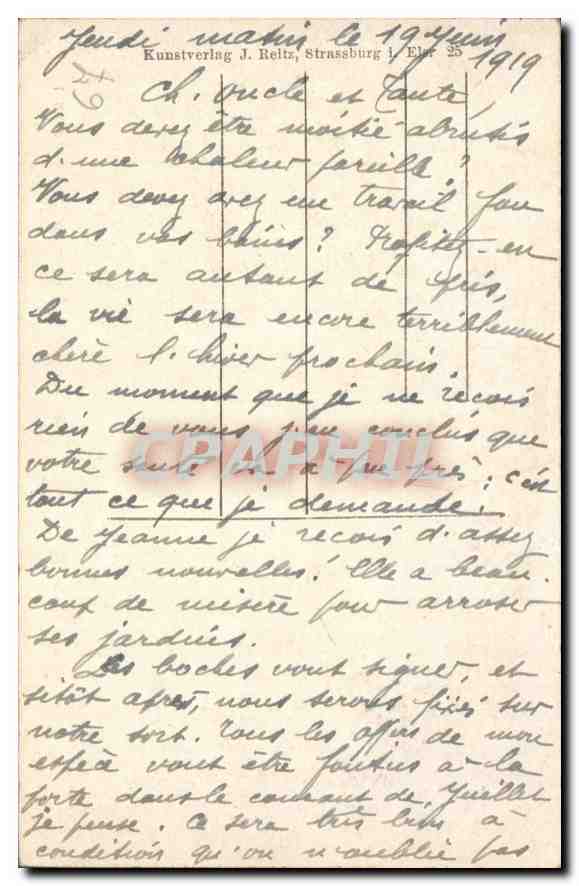 Jeudi matin le 19 Juin
1919
Kunstverlag J. Reitz, Strassburg i. Els. 25
Ch. Oncle et Tante,
Vous devez être moitié abrutis
d'une chaleur pareille?
Vous devez avez un travail fou
dans vos bains? Profitez-en
ce sera autant de pris,
la vie sera encore terriblement
chère l'hiver prochain.
Du moment que je ne reçois
rien de vous j'en conclus que
votre santé va à peu près; c'est
tout ce que je demande.
De Jeanne je reçois d'assez
bonnes nouvelles! Elle a beau-
coup de misère pour arroser
ses jardins.
Les boches vont signer, et
sitôt après, nous serons fixés sur
notre sort. Tous les offirs de mon
espèce vont être foutus à la
porte dans le courant de Juillet
je pense. Ce sera très bien à
condition qu'on n'oublie pas
CPAPHIL